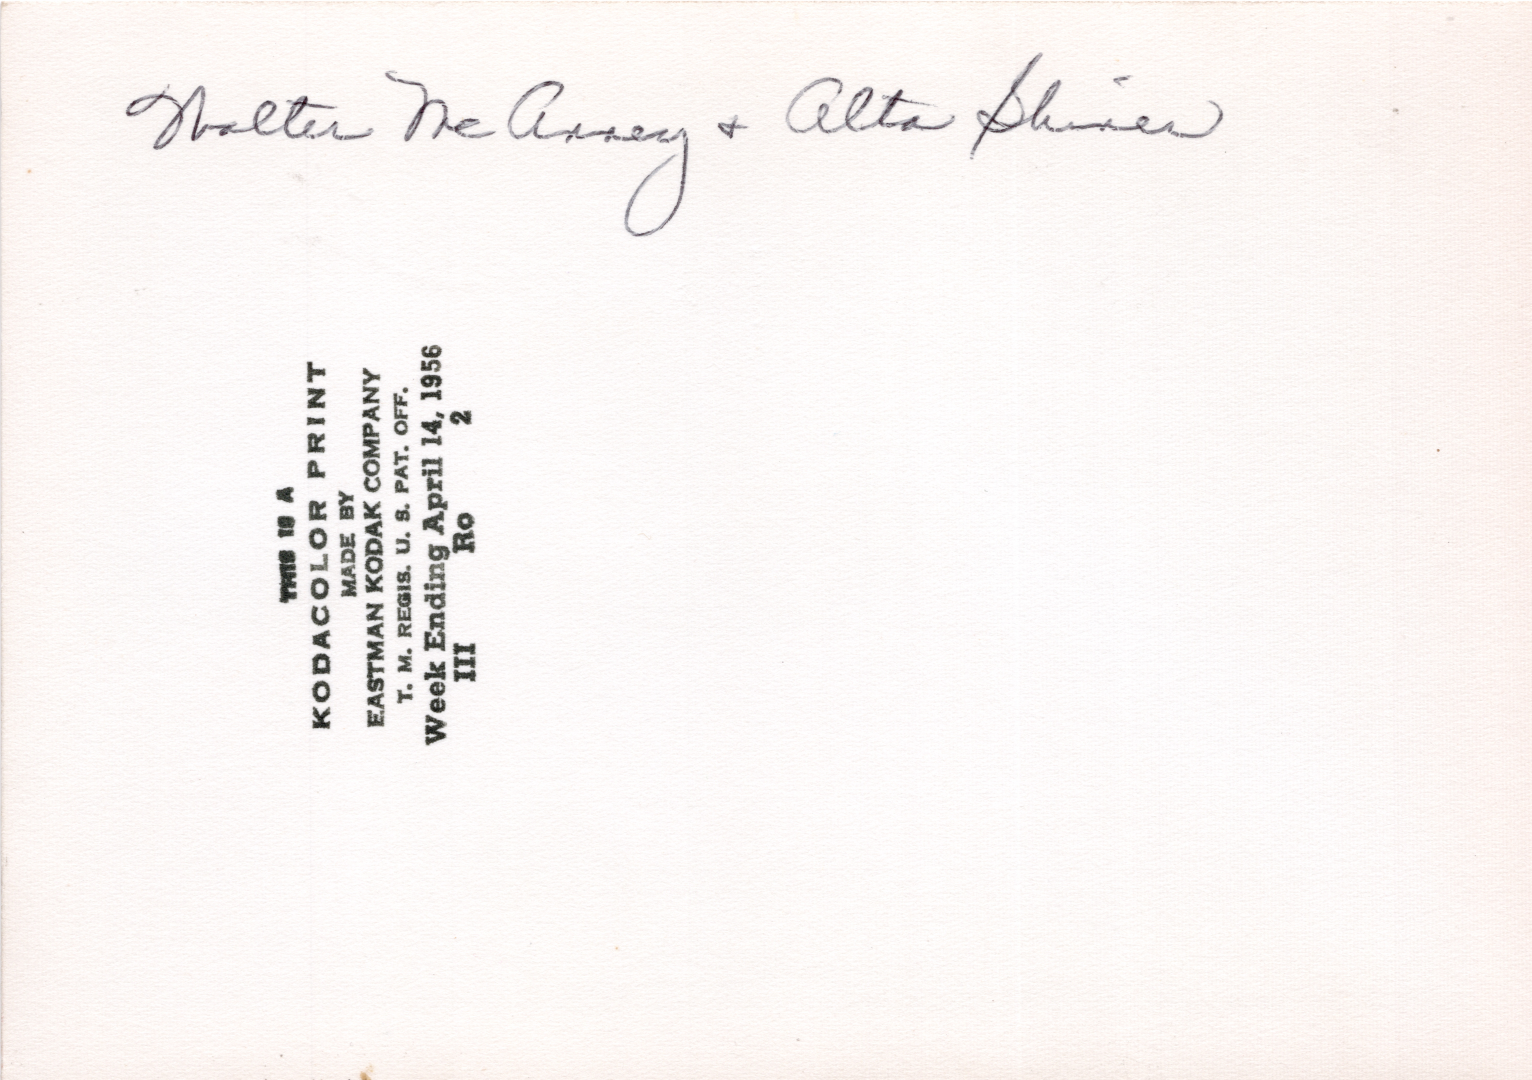 Walter Mc Anney + Alta Shiner
THIS IS A
KODACOLOR PRINT
MADE BY
EASTMAN KODAK COMPANY
T. M. REGIS. U. S. PAT. OFF.
Week Ending April 14, 1956
III Ro 2